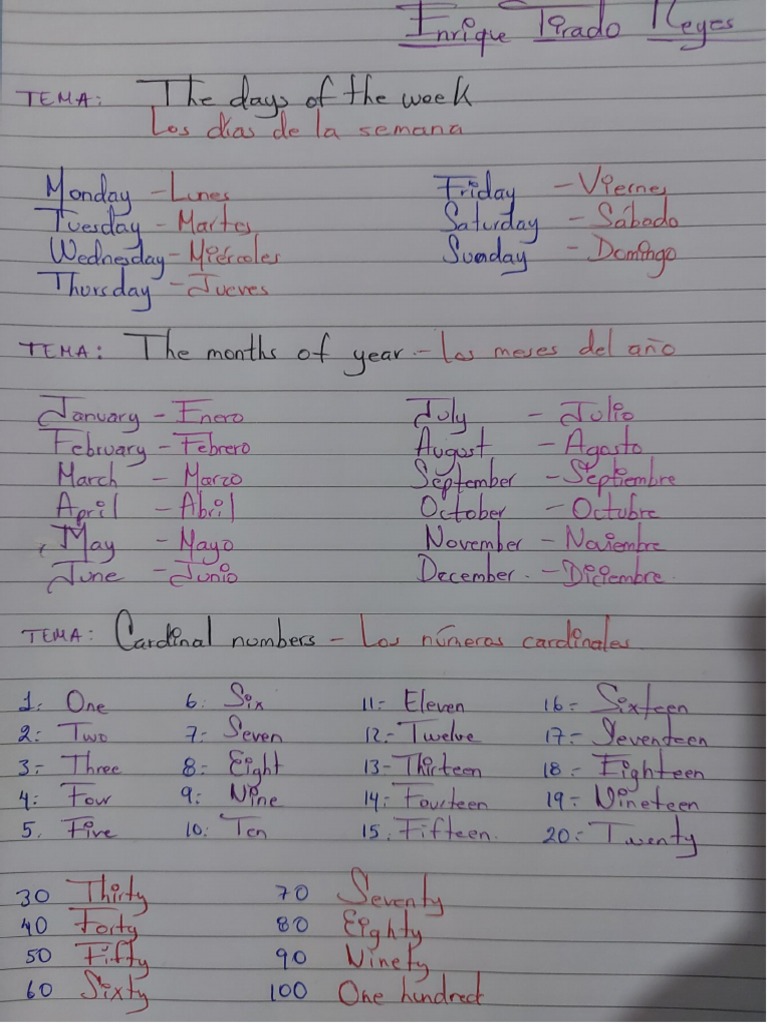 Enrique Tirado Reyes
TEMA: The days of the week
Los días de la semana
Monday - Lunes Friday - Viernes
Tuesday - Martes Saturday - Sábado
Wednesday - Miércoles Sunday - Domingo
Thursday - Jueves
TEMA: The months of year - Los meses del año
January - Enero July - Julio
February - Febrero August - Agosto
March - Marzo September - Septiembre
April - Abril October - Octubre
May - Mayo November - Noviembre
June - Junio December. - Diciembre.
TEMA: Cardinal numbers - Los números cardinales
1: One 6: Six 11- Eleven 16- Sixteen
2: Two 7- Seven 12- Twelve 17- Seventeen
3- Three 8- Eight 13- Thirteen 18- Eighteen
4: Four 9: Nine 14- Fourteen 19- Nineteen
5. Five 10: Ten 15. Fifteen. 20: Twenty
30 Thirty 70 Seventy
40 Forty 80 Eighty
50 Fifty 90 Ninety
60 Sixty 100 One hundred